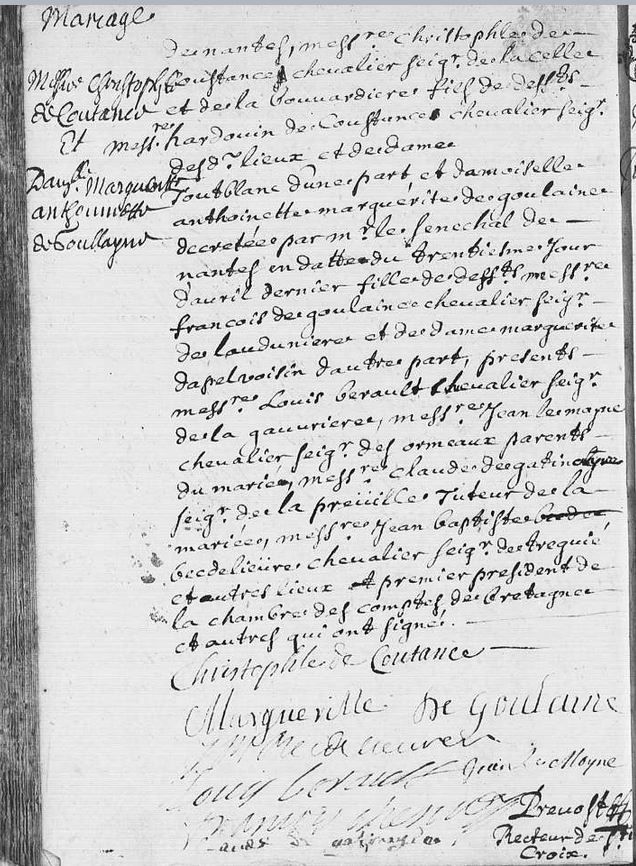 Mariage
Messire Christophle
de Coutance
Et
Dam.lle Margueritte
anthoinette
de Goullayne
de nantes, mess.re Christophle de
Coustance chevalier seig.r de la Celle
et de la bouvardiere fils de deff.ts
mess.re hardouin de Constance chevalier seig.r
desd. lieux et de dame
Toutblanc d'une part et damoiselle
anthoinette marguérite de goulaine
decretée par m.r le senechal de
nantes en datte du trentiesme Jour
d'avril dernier fille de deff.ts mess.re
francois de goulaine chevalier seig.r
de lauduniere et de dame marguerite
dapelvoisin d'autre part, presents
mess.re Louis berault chevalier seig.r
de la gauvriere, mess.re Jean le moyne
chevalier seig.r des ormeaux parents
du marié, mess.re Claude de gatinaire
seig.r de la preüille Tuteur de la
mariée, mess.re Jean baptiste becde
becdelieüre chevalier seig.r de treguié
et autres lieux et premier president de
la chambre des comptes de bretagne
et autres qui ont signé.
Christophle de Coutance
Margueritte De Goulaine
Louis berault Jean Le Moyne
Prevost
Recteur de S.te
Croix.